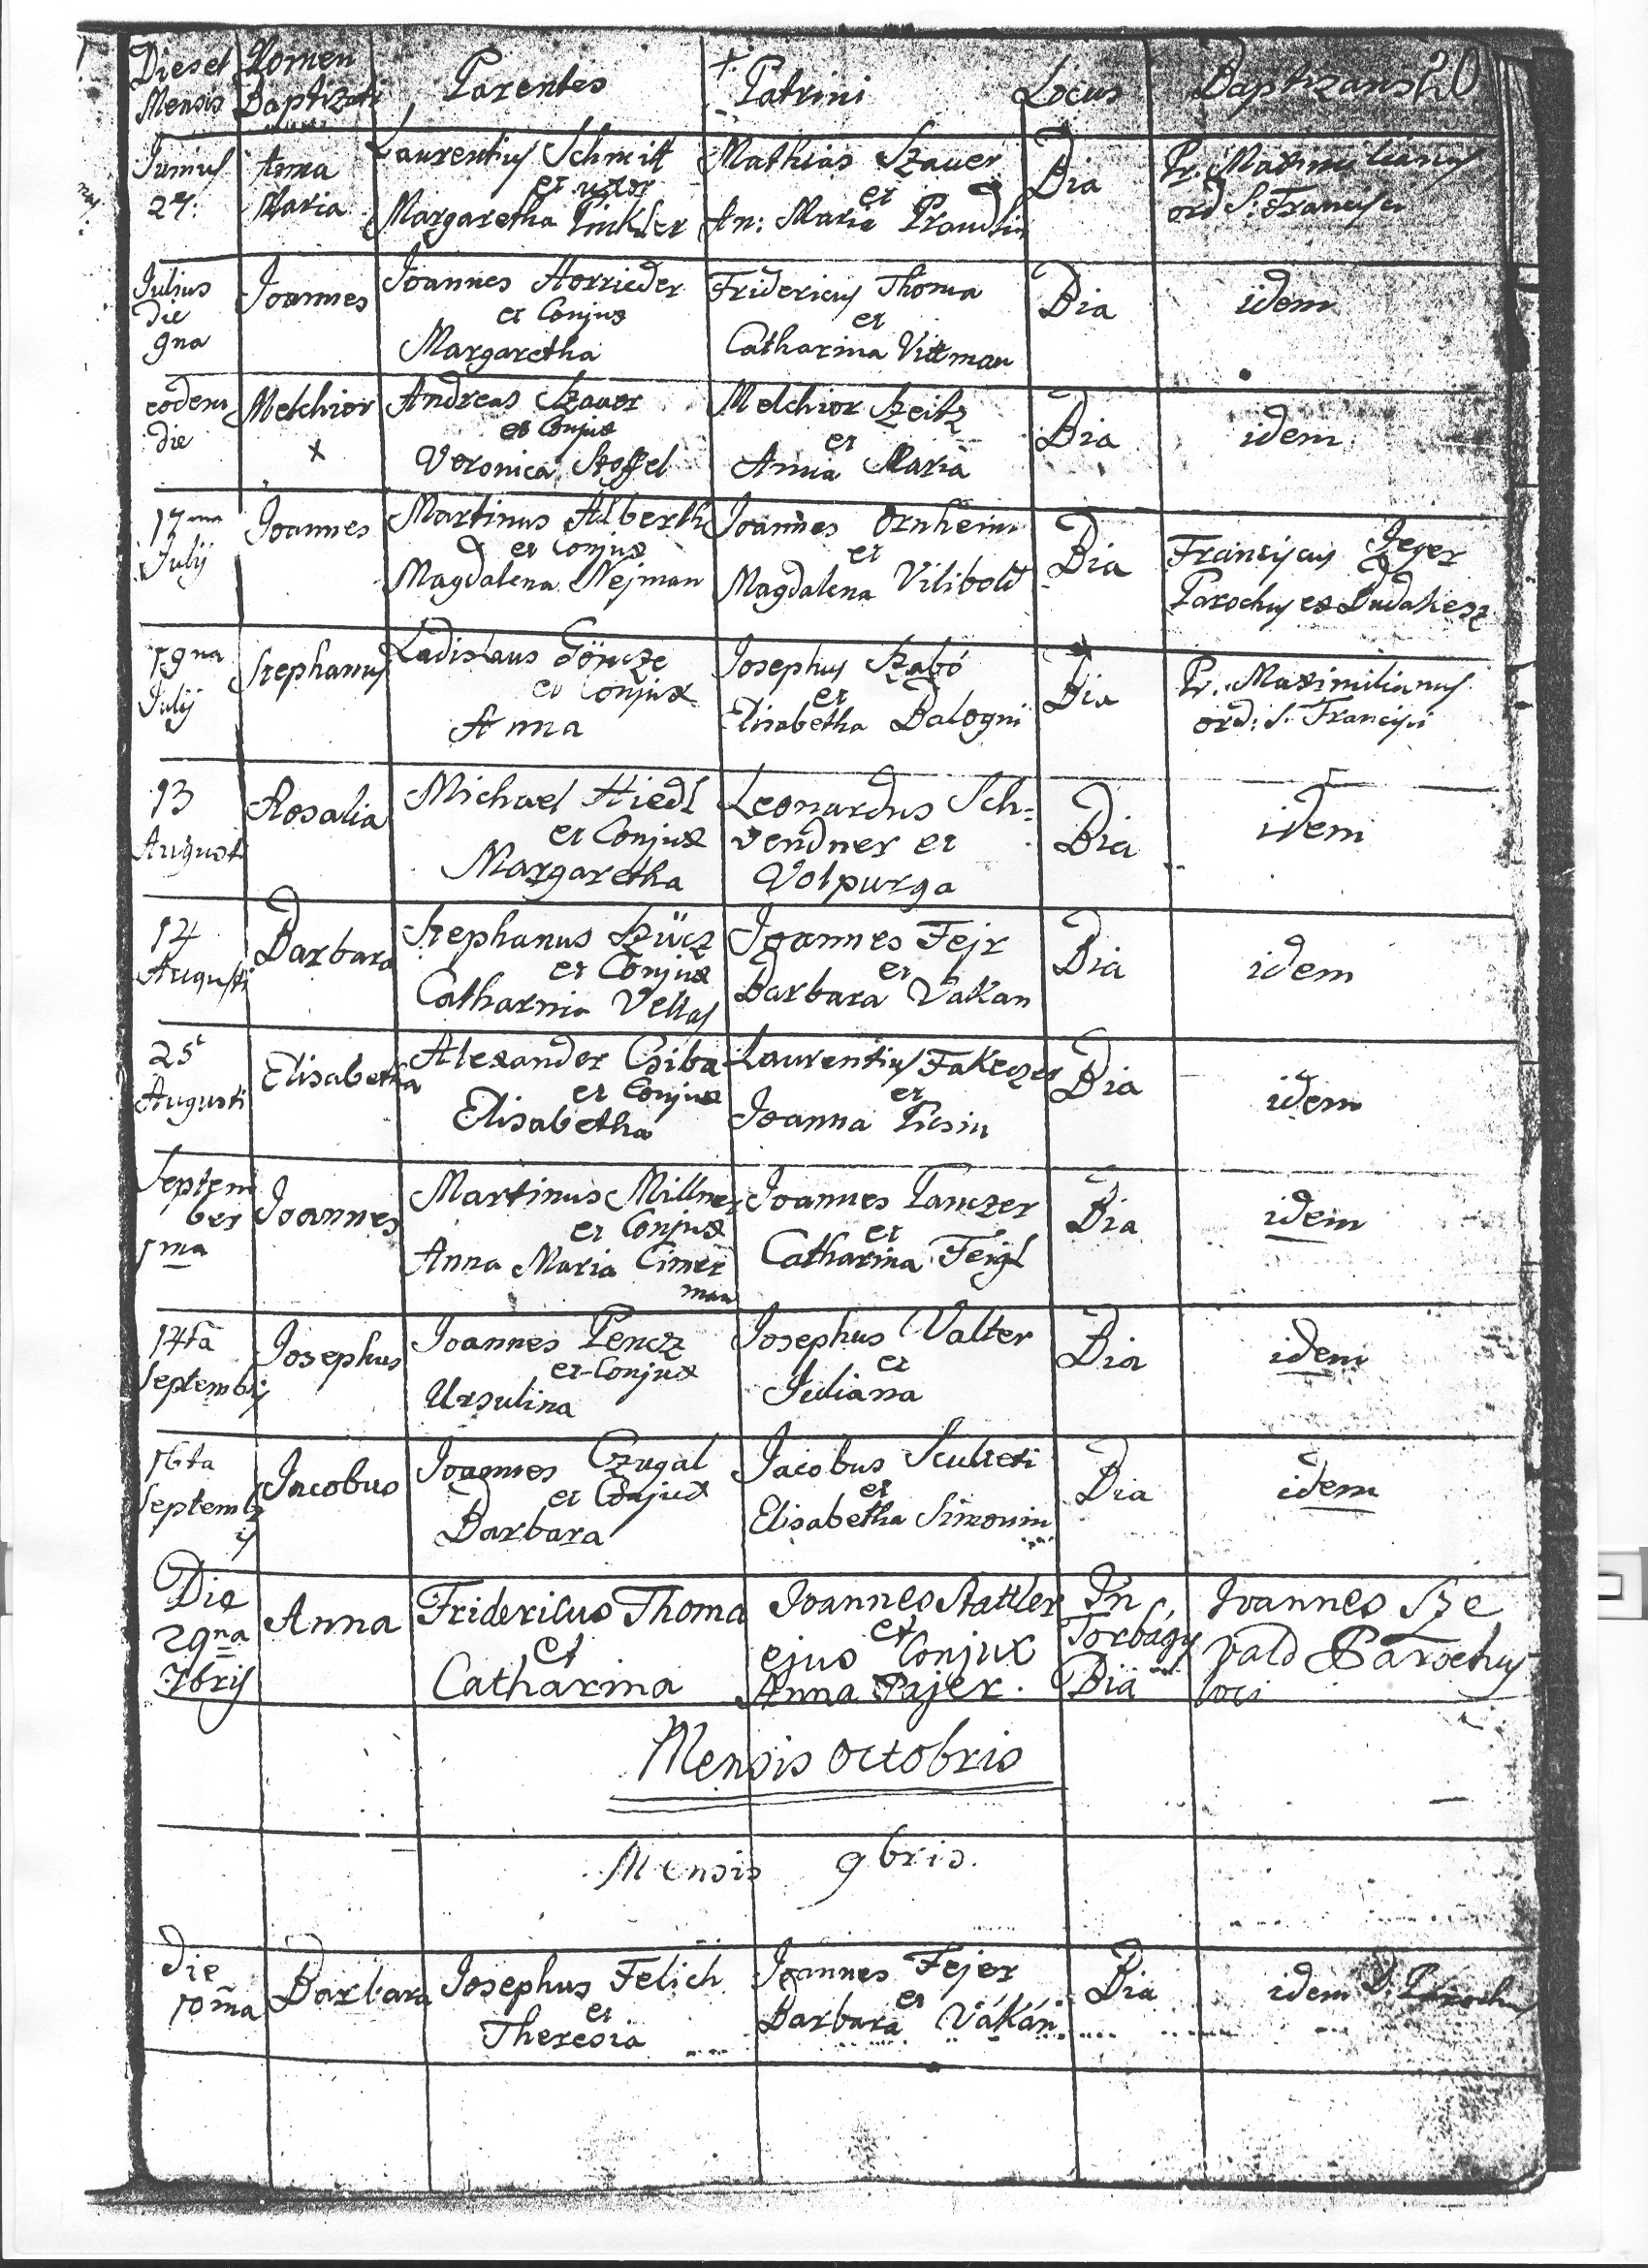 Dies et Nomen Parentes Patrini Locus Baptizans 20
Mensis Baptizati
Junius Anna Laurentius Schmitt Mathias Szauer Bia Pr. Maximilianus
27. Maria et uxor et ord S: Francisci
Margaretha Pinkler An: Maria Prandlin
Julius Joannes Joannes Horrieder Fridericus Thoma Bia idem
Die et Conjux et
9na Margaretha Catharina Vittman
eodem Melchior Andreas Szauer Melchior Szeitz Bia idem
die x et Conjux et
Veronica Stoffel Anna Maria
17ma Joannes Martinus Alberth Joannes Ornheim Bia Franciscus Jeger
Julij et Conjux et Parochus ex Budakesz
Magdalena Nejman Magdalena Vilibold
19na Stephanus Ladislaus Göncze Josephus Szabó Bia Pr. Maximilianus
Julij et Conjux et ord: S. Francisci
Anna Elisabetha Balogni
13 Rosalia Michael Hiedl Leonardus Sch= Bia idem
Augusti et Conjux vendner et
Margaretha Volpurga
14 Barbara Stephanus Szücz Joannes Fejr Bia idem
Augusti et Conjux et
Catharina Veltas Barbara Vakan
25t Elisabetha Alexander Csiba Laurentius Fakeczes Bia idem
Augusti et Conjux et
Elisabetha Joanna Picsin
Septem Joannes Martinus Millner Joannes Panczer Bia idem
ber et Conjux et
1ma Anna Maria Cimer Catharina Feigl
man
14ta Josephus Joannes Pencz Josephus Valter Bia idem
Septembris et Conjux et
Ursulina Juliana
16ta Jacobus Joannes Czugal Jacobus Sculteti Bia idem
Septembr et Conjux et
is Barbara Elisabetha Simonin
Die Anna Fridericus Thoma Joannes Stattler In Joannes Sze
29na et et Torbágy vald Parochus
7bris Catharina ejus Conjux Bia loci
Anna Pajer.
Mensis Octobris
Mensis 9bris.
Die Barbara Josephus Felich Joannes Fejer Bia idem D. Parochus
10ma et et
Theresia Barbara Vákán